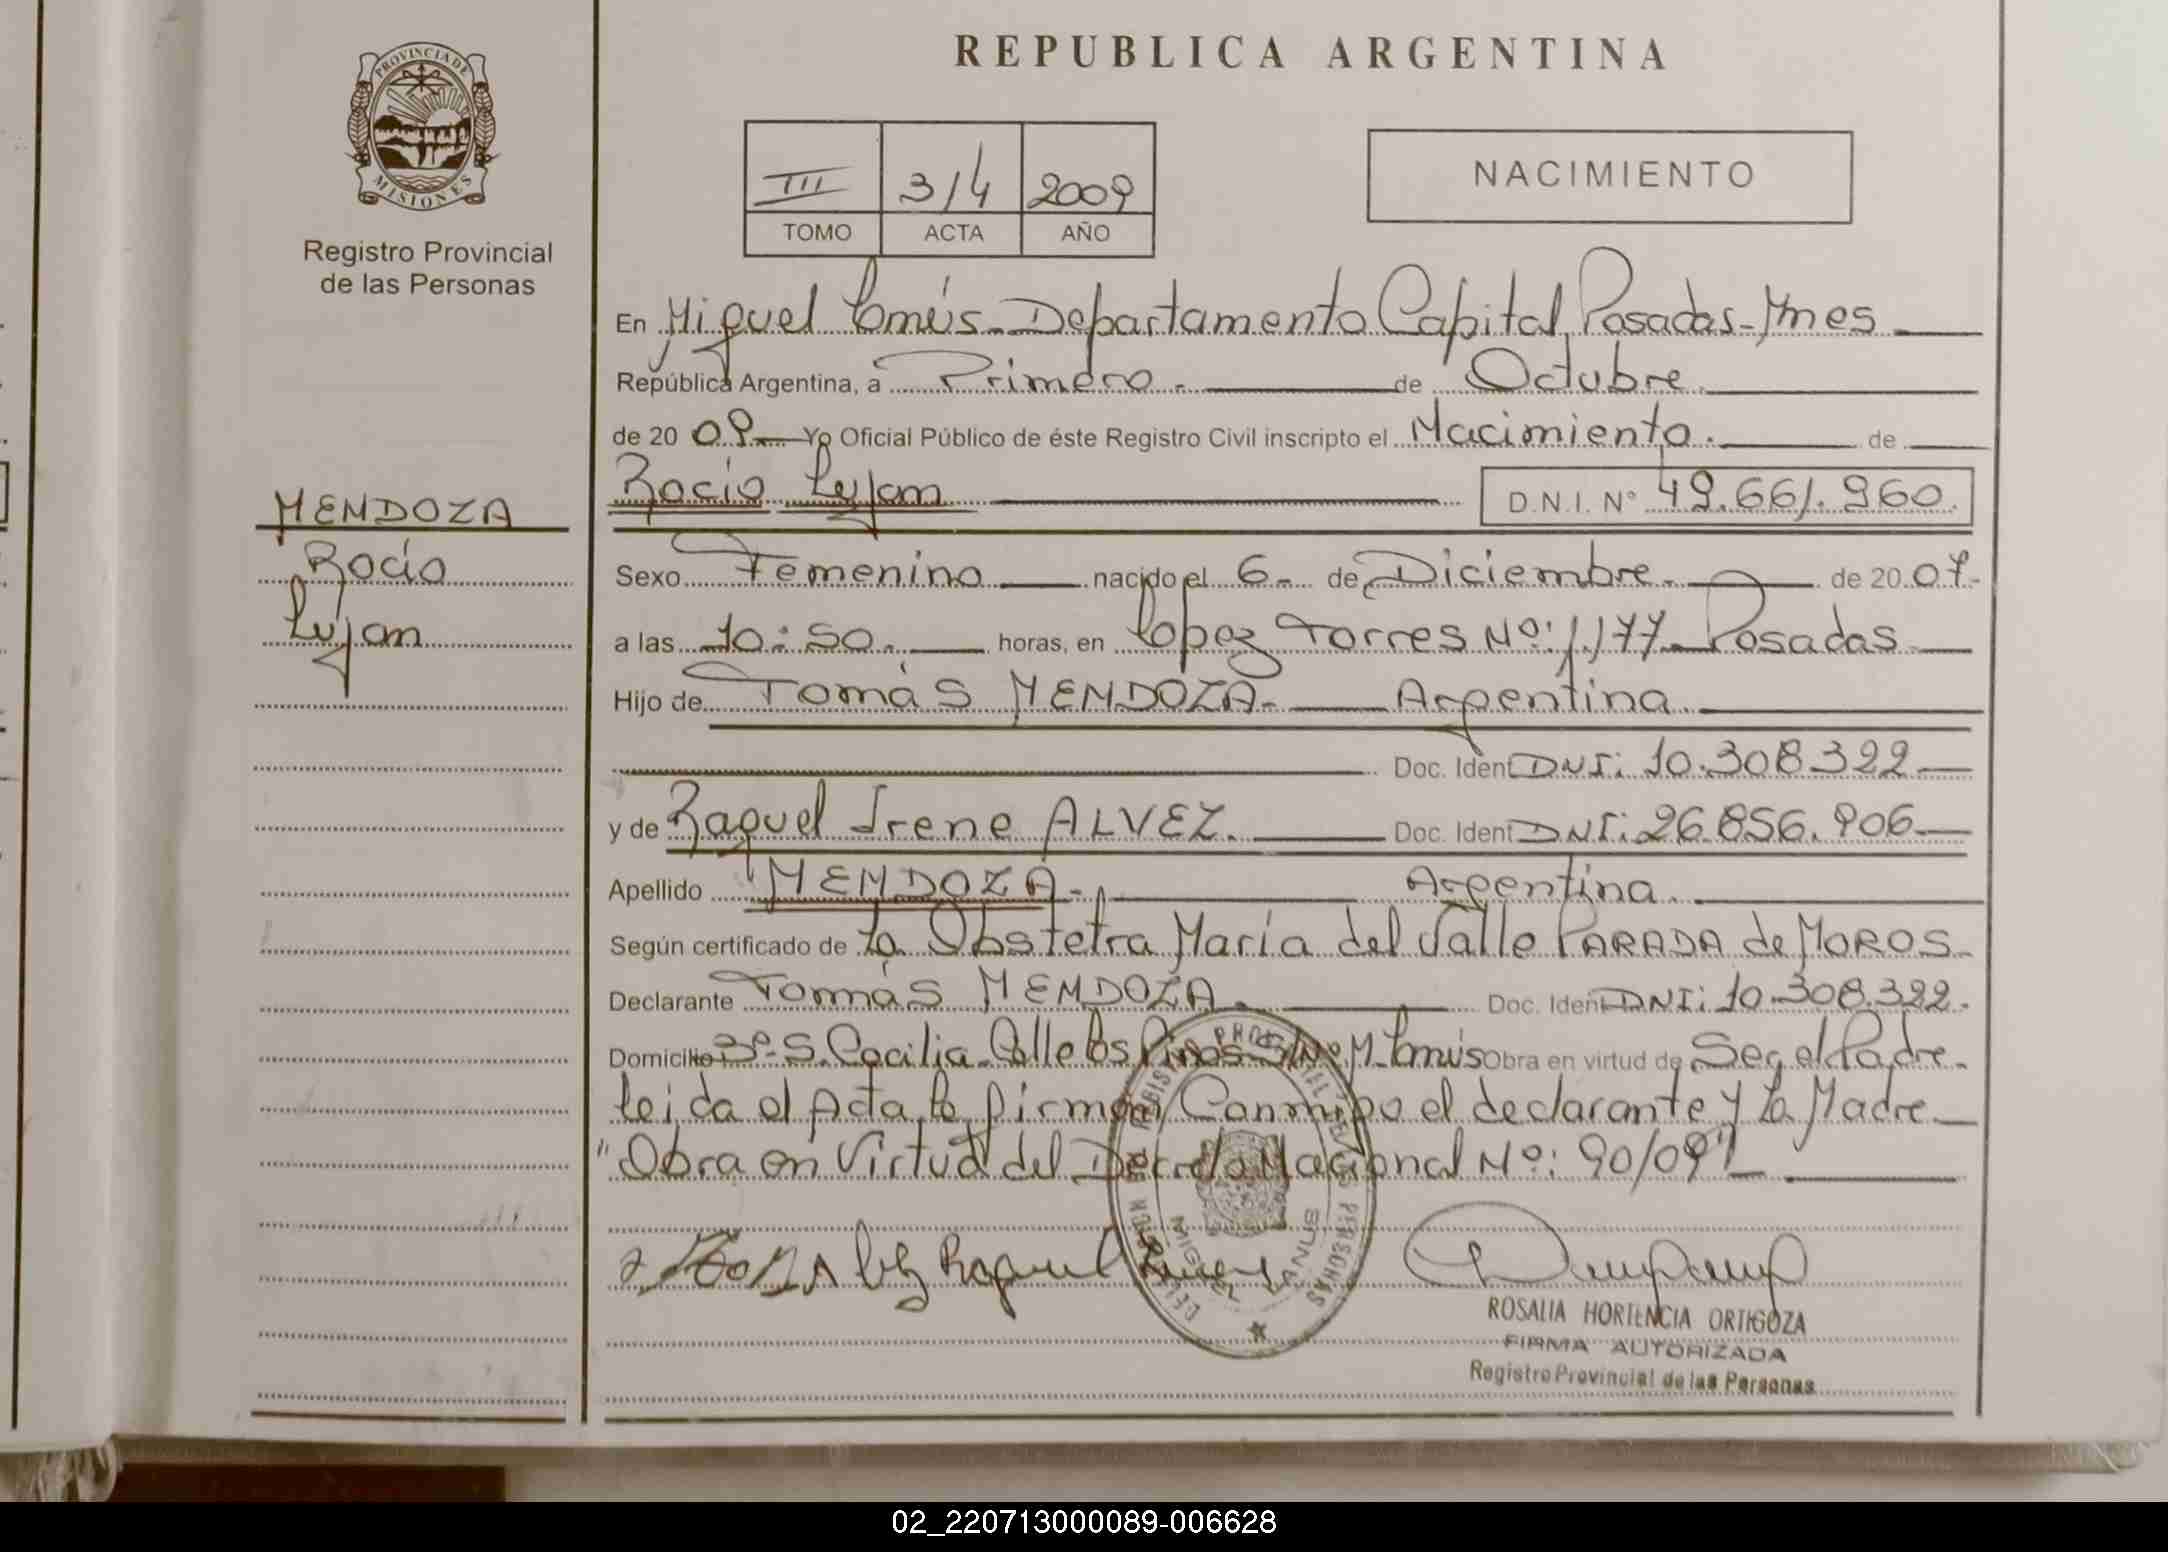 REPUBLICA ARGENTINA
PROVINCIA DE
MISIONES
Registro Provincial
de las Personas
III 314 2009
TOMO ACTA AÑO
NACIMIENTO
En Miguel Lanús - Departamento Capital, Posadas - Mnes
República Argentina, a Primero.- de Octubre.
de 20 09 Yo Oficial Público de éste Registro Civil inscripto el Nacimiento. de
Rocío Luján D.N.I. Nº 49.661.960.
MENDOZA
Rocío
Luján
Sexo Femenino nacido el 6.- de Diciembre. de 20 07.-
a las 10:50. horas, en López Torres Nº: 1.177 - Posadas
Hijo de Tomás MENDOZA- Argentina.
Doc. Ident DNI: 10.308.322
y de Raquel Irene ALVEZ. Doc. Ident DNI: 26.856.906
Apellido MENDOZA.- Argentina.
Según certificado de La Obstetra María del Valle PARADA de MOROS.
Declarante Tomás MENDOZA. Doc. Ident DNI: 10.308.322.
Domicilio Bº S. Cecilia - Calle Los Pinos S/Nº M. Lanús Obra en virtud de Ser el Padre.
Leida el Acta, la firman Conmigo el declarante y La Madre
"Obra en Virtud del Decreto Nacional Nº: 90/09"
Raquel
MIGUEL LANUS
ROSALIA HORTENCIA ORTIGOZA
FIRMA AUTORIZADA
Registro Provincial de las Personas
02_220713000089-006628